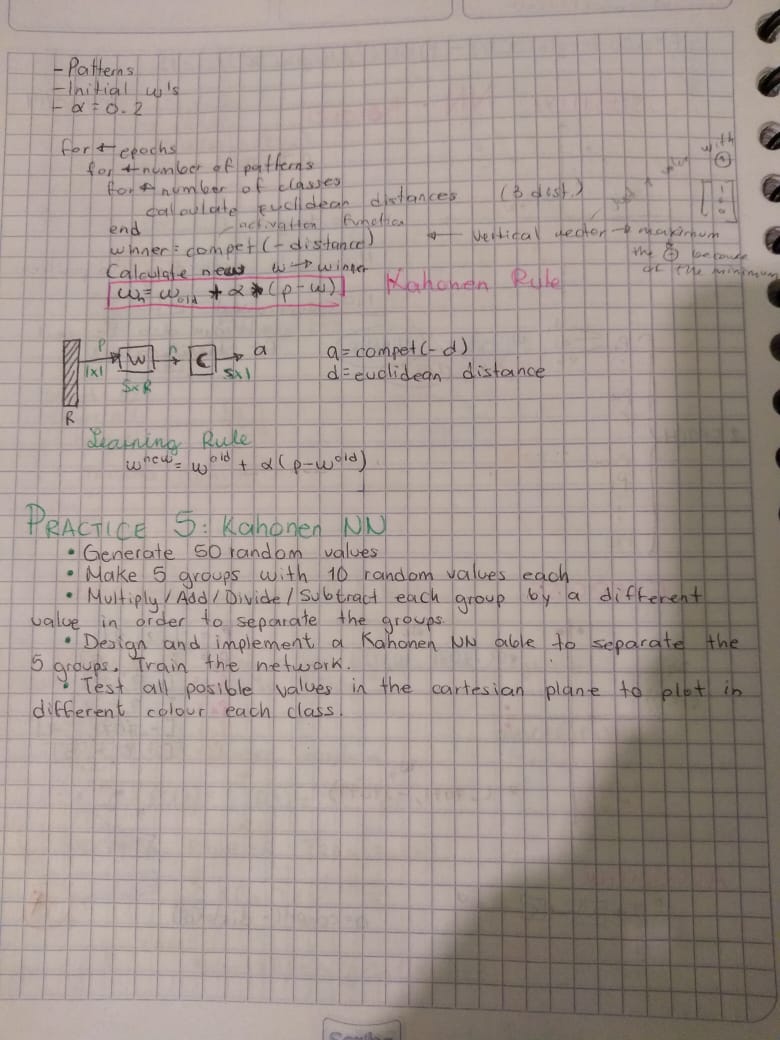 - Patterns
- Initial w's
- α = 0.2
for ← epochs
for ← number of patterns
for ← number of classes
calculate Euclidean distances (3 dist.)
end
activation function
winner = compet(-distance) ← vertical vector → maximum
with
the ⊕ because
of the minimum
Calculate new w → winner
wn = wold + α * (p-w) Kahonen Rule
P
1x1
W
SxR
C
Sx1
a
R
a = compet(-d)
d = euclidean distance
Learning Rule
w^new = w^old + α(p-w^old)
PRACTICE 5: Kahonen NN
• Generate 50 random values
• Make 5 groups with 10 random values each
• Multiply / Add / Divide / Subtract each group by a different
value in order to separate the groups.
• Design and implement a Kahonen NN able to separate the
5 groups. Train the network.
• Test all posible values in the cartesian plane to plot in
different colour each class.